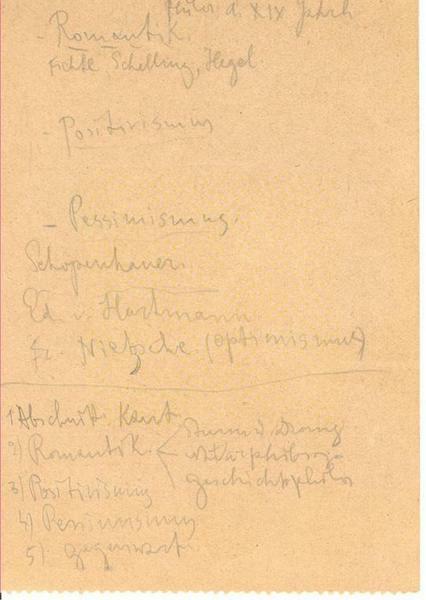 Philos d. XIX Jahrh
- Romantik.
Fichte, Schelling, Hegel.
- Positivismus
- Pessimismus.
Schopenhauer.
Ed. v. Hartmann
Fr. Nietzsche (optimismus)
1 Abschnitt. Kant
2) Romantik. Sturm u. Drang
Naturphilos.
geschichtsphilos
3) Positivismus
4) Pessimismus
5) gegenwart.